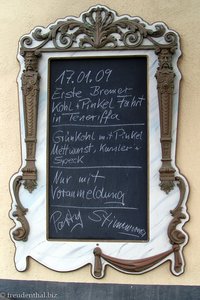 17.01.09
Erste Bremer
Kohl + Pinkel Fahrt
in Teneriffa
Grünkohl mit Pinkel
Mettwurst, Kassler +
Speck
Nur mit
Voranmeldung
Party Stimmung
© trendenstal.biz